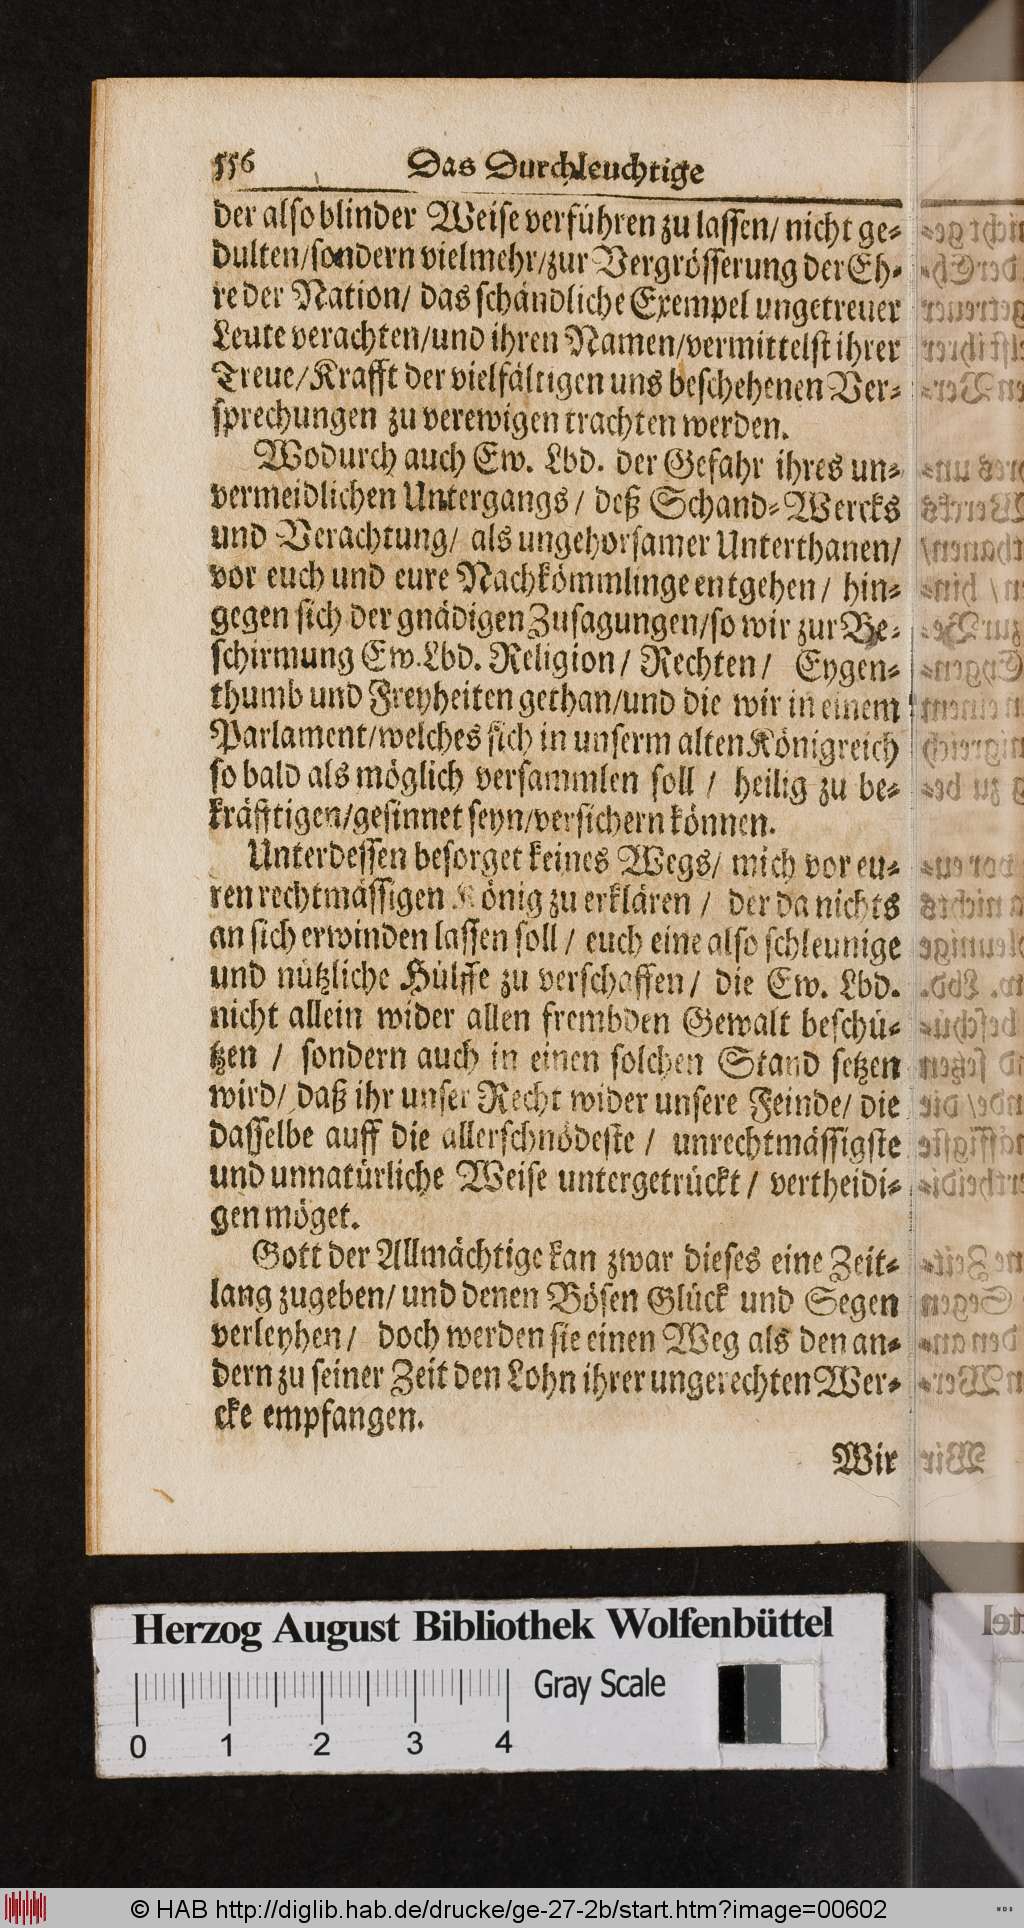 556 Das Durchleuchtige
der also blinder Weise verführen zu lassen/ nicht ge-
dulten/sondern vielmehr/zur Vergrösserung der Eh-
re der Nation/ das schändliche Exempel ungetreuer
Leute verachten/und ihren Namen/vermittelst ihrer
Treue/Krafft der vielfältigen uns beschehenen Ver-
sprechungen zu verewigen trachten werden.
Wodurch auch Ew. Lbd. der Gefahr ihres un-
vermeidlichen Untergangs/ deß Schand-Wercks
und Verachtung/ als ungehorsamer Unterthanen/
vor euch und eure Nachkömmlinge entgehen/ hin-
gegen sich der gnädigen Zusagungen/so wir zur Be-
schirmung Ew. Lbd. Religion/ Rechten/ Eygen-
thumb und Freyheiten gethan/und die wir in einem
Parlament/welches sich in unserm alten Königreich
so bald als möglich versammlen soll/ heilig zu be-
kräfftigen/gesinnet seyn/versichern können.
Unterdessen besorget keines Wegs/ mich vor eu-
ren rechtmässigen König zu erklären/ der da nichts
an sich erwinden lassen soll/ euch eine also schleunige
und nützliche Hülffe zu verschaffen/ die Ew. Lbd.
nicht allein wider allen frembden Gewalt beschü-
tzen/ sondern auch in einen solchen Stand setzen
wird/ daß ihr unser Recht wider unsere Feinde/ die
dasselbe auff die allerschnödeste/ unrechtmässigste
und unnatürliche Weise untergetrückt/ vertheidi-
gen möget.
Gott der Allmächtige kan zwar dieses eine Zeit-
lang zugeben/ und denen Bösen Glück und Segen
verleyhen/ doch werden sie einen Weg als den an-
dern zu seiner Zeit den Lohn ihrer ungerechten Wer-
cke empfangen.
Wir
Herzog August Bibliothek Wolfenbüttel
Gray Scale
0 1 2 3 4
© HAB http://diglib.hab.de/drucke/ge-27-2b/start.htm?image=00602